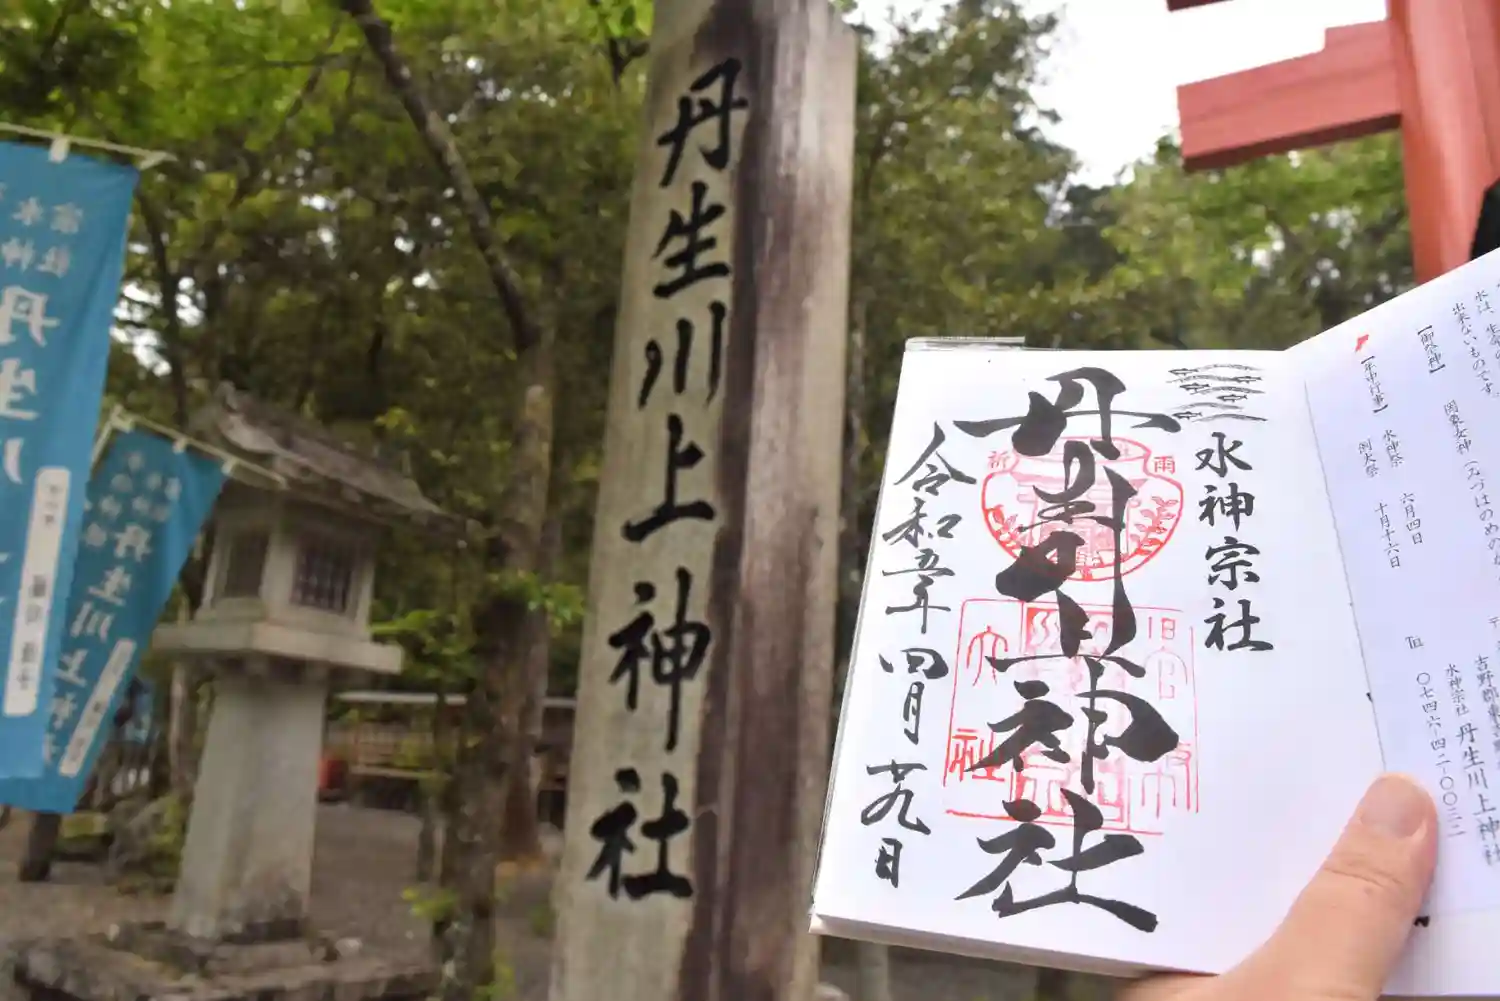 丹生川上神社
水神宗社
丹生川上神社
令和五年四月廿九日
祈
雨
水は、生命の
出来ないものです。
【御祭神】
罔象女神(みづはのめのか
【年中行事】
水神祭 六月四日
例大祭 十月十六日
吉野郡東吉野
水神宗社 丹生川上神社
℡ 〇七四六-四二-〇〇三二
水神宗社
丹生川
丹生川上神社